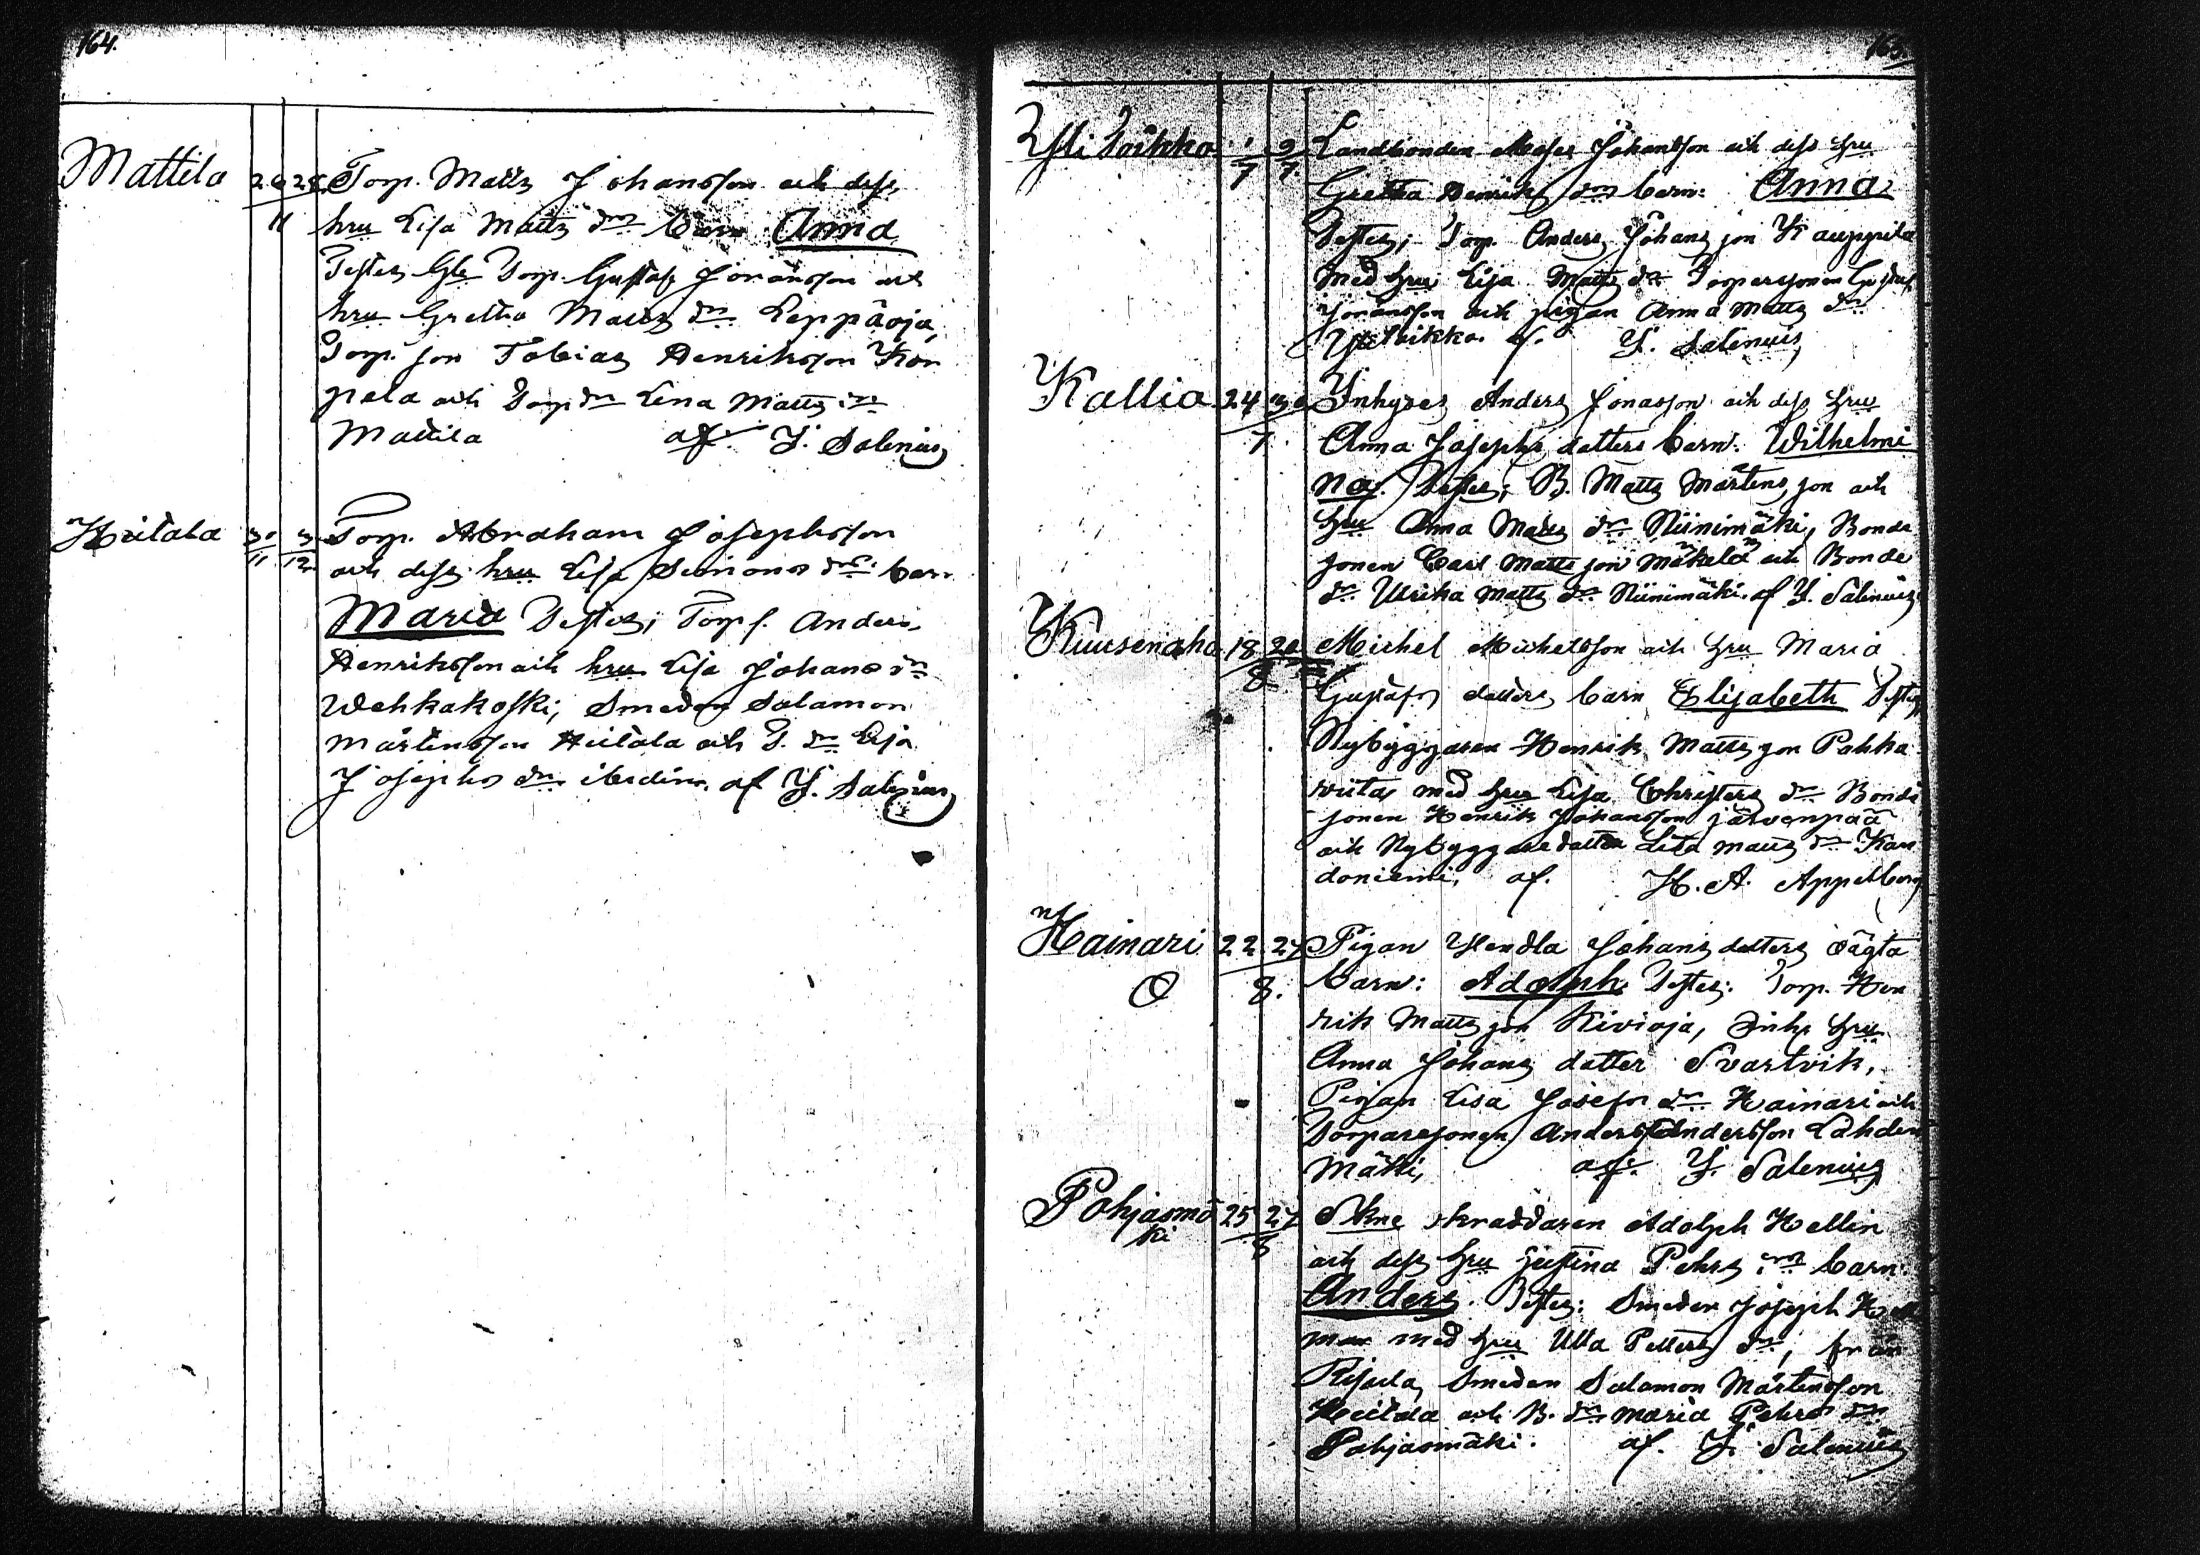 164.
Mattila 26 28 Torp. Matts Johansson och dess
11 hru Lisa Matts dr barn Anna
Testes, Gle Torp. Gustaf Joransson och
hru Gretha Matts dr Leppäoja,
Torp. son Tobias Henriksson Kor
pela och Torp dr Lena Matts dr
Mattila af Y. Salenius
Heitala 30 3 Torp. Abraham Josephsson
11 12 och dess hru Lisa Simons drs barn
Maria Testes; Torp s. Anders
Henriksson och hru Lisa Johans dr
Wehkakoski, Smeden Salamon
Mårtensson Heitala och T. dr Lisa
Josephs dr ibidem. af Y. Salenius
165.
Yli Soikka 1 9 Landbonden Moses Johansson och dess hru
7 7 Gretha Henriks drs barn: Anna
Testes; Torp. Anders Johans son Kauppila
med hru Lisa Matts dr Torparesonen Gustaf
Joransson och pigan Anna Matts dr
Ylisoikka. af. Y. Salenius
Kallia 24 30 Inhyses Anders Jonasson och dess hru
7 Anna Josephs datters barn: Wilhelmi
na. Testes; B. Matts Mårtens son och
hru Anna Matts dr Niinimäki, Bonde
sonen Carl Matts son Mäkelä och Bonde
dr Ulrika Matts dr Niinimäki. af Y. Salenius
Kuusenaho 18 20 Michel Michelsson och hru Maria
8 Gustafs datters barn Elisabeth Testes
Nybyggaren Henrik Matts son Pahka
wiita med hru Lisa Christers dr Bonde
sonen Henrik Johansson Järvenpää
och Nybyggaredatter Lisa Matts dr Kan
doniemi, af. H. A. Appelberg
Hainari 22 27 Pigan Hendla Johans datters oägta
O 8. barn: Adolph Testes: Torp. Hen
rik Matts son Kivioja, Inhs hru
Anna Johans datter Svartvik,
Pigan Lisa Josefs dr Hainari och
Torparesonen Anders Andersson Lahden
Mäkki, af. Y. Salenius
Pohjasmä 25 27 Skne skraddaren Adolph Hellin
ki 8 och dess hru Justina Pehrs drs barn:
Anders. Testes: Smeden Joseph Hell
man med hru Ulla Petters dr, från
Smeden Salamon Mårtensson
Heitala och B. dr Maria Pehrs dr
Pohjasmäki. af. Y. Salenius